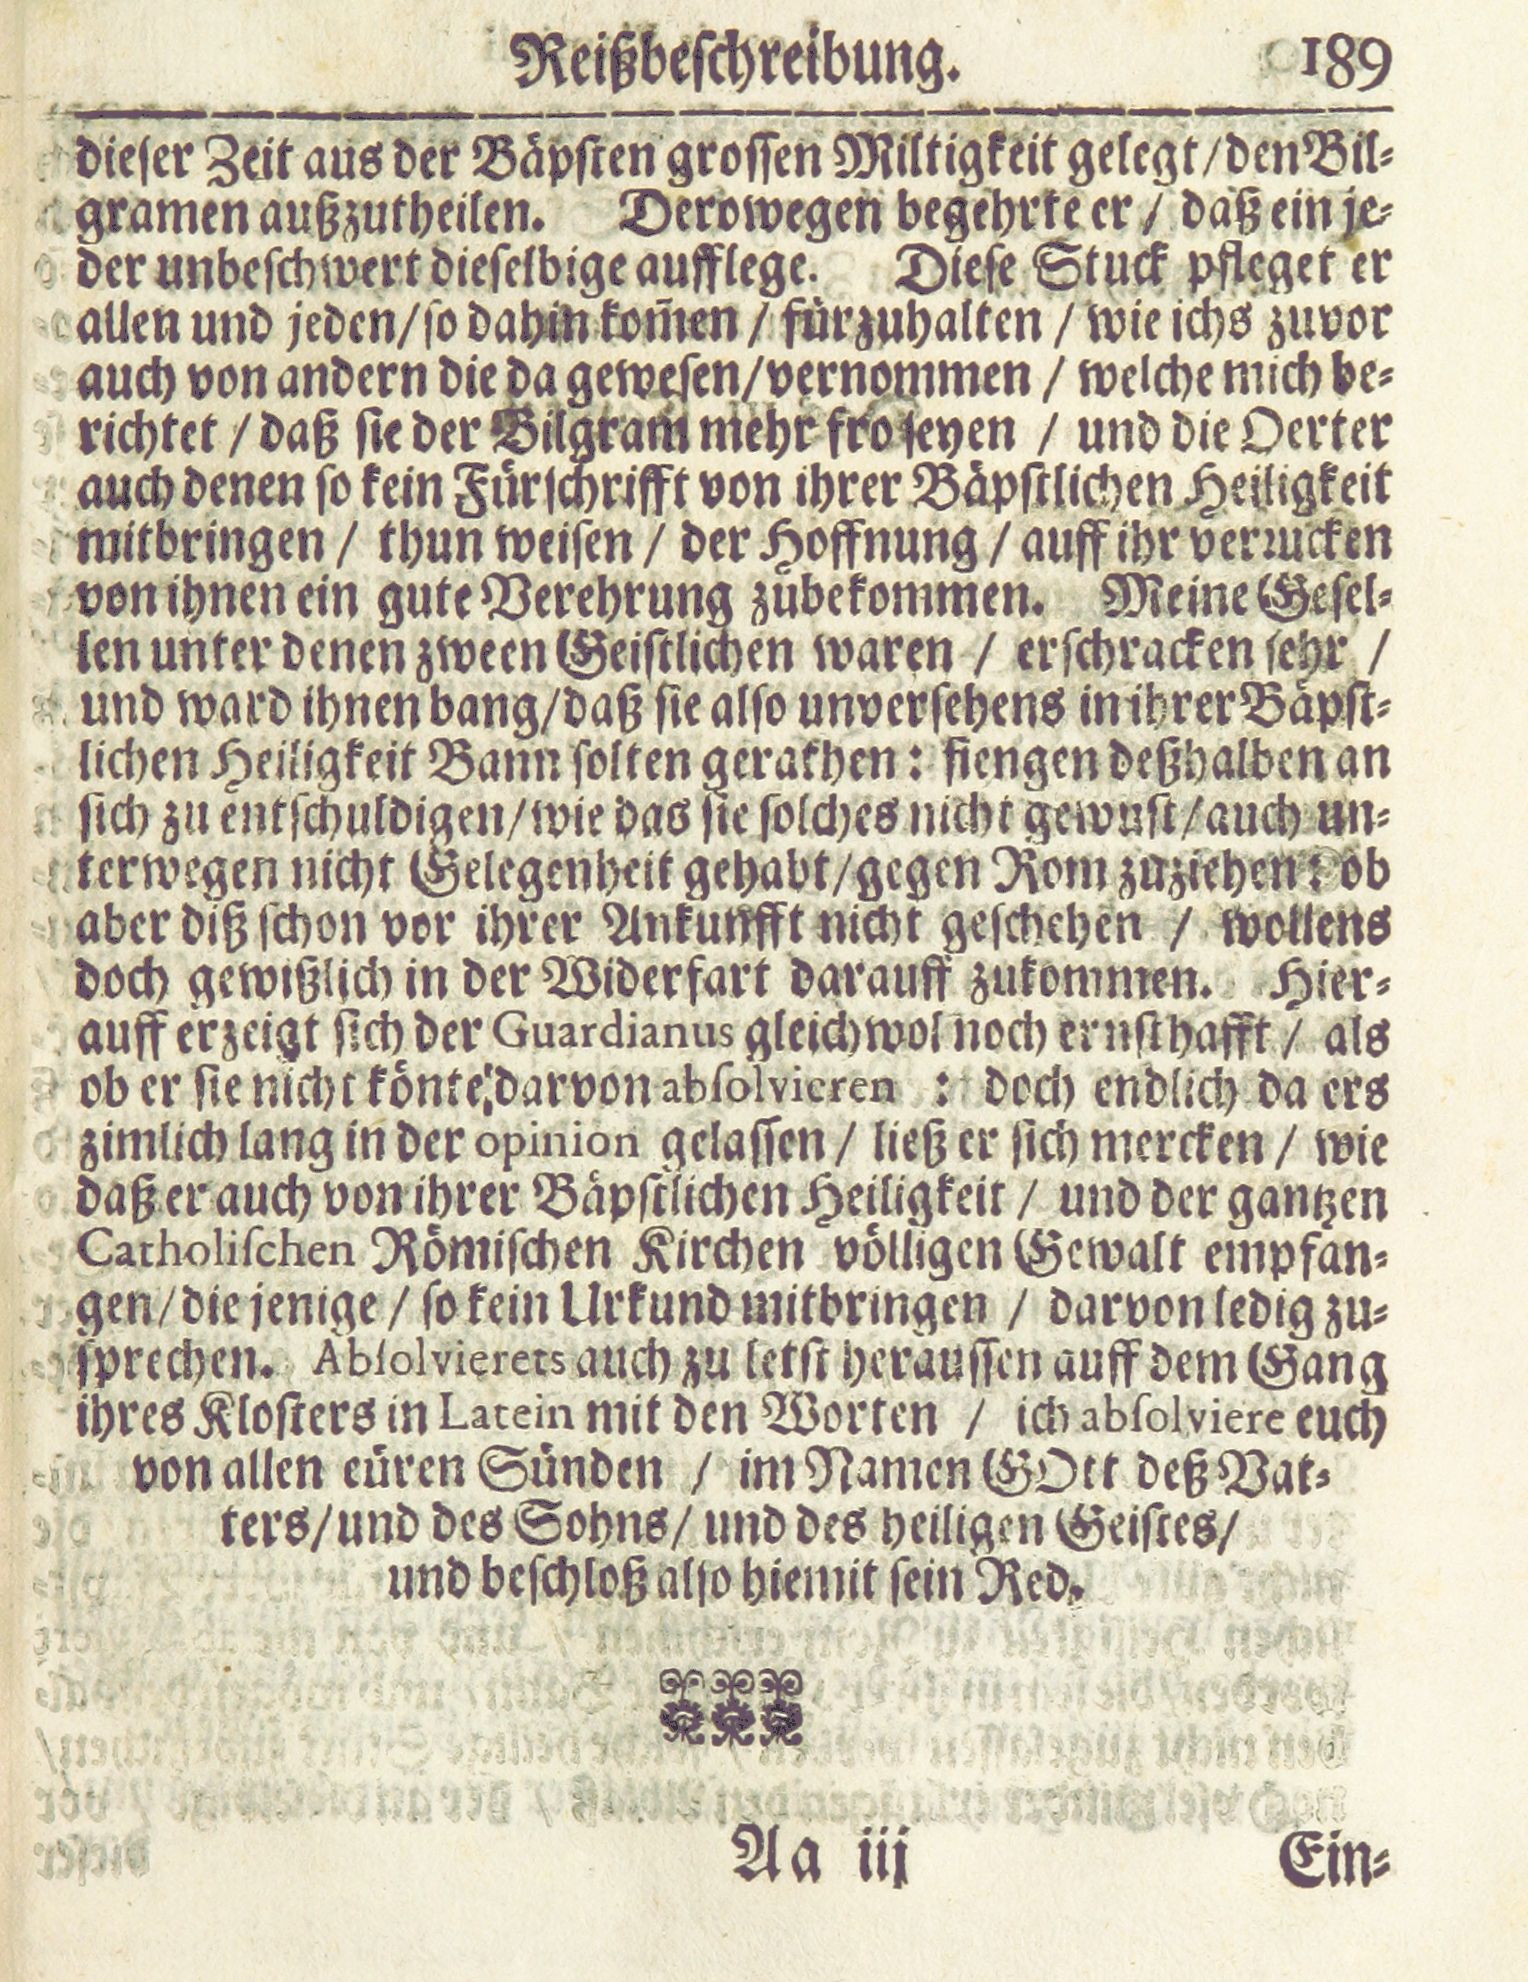 Reißbeſchreibung. 189
dieſer Zeit aus der Bäpſten groſſen Miltigkeit gelegt/den Bil⸗
gramen außzutheilen. Derowegen begehrte er / daß ein je⸗
der unbeſchwert dieſelbige aufflege. Dieſe Stuck pfleget er
allen und jeden/ſo dahin kom̄en / fürzuhalten / wie ichs zuvor
auch von andern die da geweſen/vernommen / welche mich be⸗
richtet / daß ſie der Bilgram mehr fro ſeyen / und die Oerter
auch denen ſo kein Fürſchrifft von ihrer Bäpſtlichen Heiligkeit
mitbringen / thun weiſen / der Hoffnung / auff ihr verrucken
von ihnen ein gute Verehrung zübekommen. Meine Geſel⸗
len unter denen zween Geiſtlichen waren / erſchracken ſehr /
und ward ihnen bang/daß ſie alſo unverſehens in ihrer Bäpſt⸗
lichen Heiligkeit Bann ſolten gerathen: fiengen deßhalben an
ſich zu entſchuldigen/wie das ſie ſolches nicht gewuſt/auch un⸗
terwegen nicht Gelegenheit gehabt/gegen Rom zuziehen: ob
aber diß ſchon vor ihrer Ankunfft nicht geſchehen / wollens
doch gewißlich in der Widerfart darauff zukommen. Hier⸗
auff erzeigt ſich der Guardianus gleichwol noch ernſthafft / als
ob er ſie nicht könte darvon abſolvieren : doch endlich da ers
zimlich lang in der opinion gelaſſen / ließ er ſich mercken / wie
daß er auch von ihrer Bäpſtlichen Heiligkeit / und der gantzen
Catholiſchen Römiſchen Kirchen völligen Gewalt empfan⸗
gen/die jenige / ſo kein Urkund mitbringen / darvon ledig zu⸗
ſprechen. Abſolvierets auch zu letſt herauſſen auff dem Gang
ihres Kloſters in Latein mit den Worten / ich abſolviere euch
von allen eüren Sünden / im Namen GOtt deß Vat⸗
ters/und des Sohns/ und des heiligen Geiſtes/
und beſchloß alſo hiemit ſein Red.
Aa iij Ein⸗